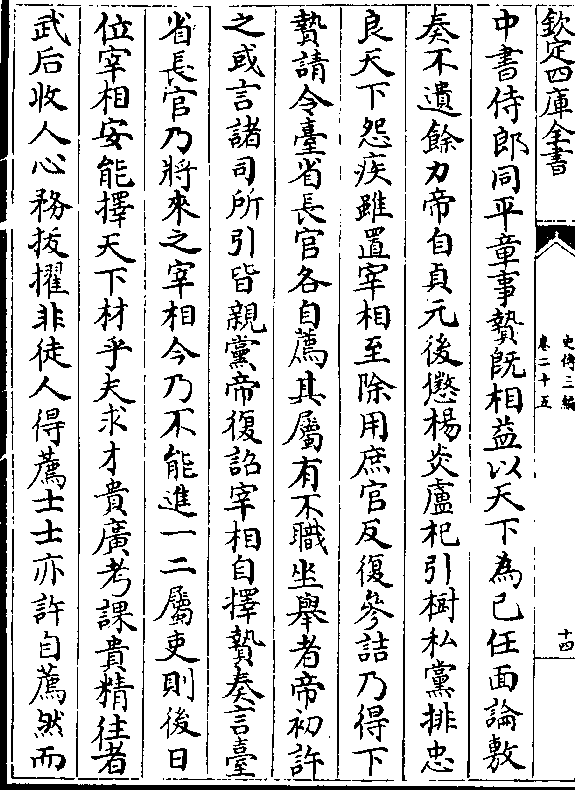 欽定四庫全書
史傳三編
卷二十五
十四
中書侍郎同平章事贄既相益以天下為己任面論敷
奏不遺餘力帝自貞元後懲楊炎盧杞引樹私黨排忠
良天下怨疾雖置宰相至除用庶官反復參詰乃得下
贄請令臺省長官各自薦其屬有不職坐舉者帝初許
之或言諸司所引皆親黨帝復詔宰相自擇贄奏言臺
省長官乃將來之宰相今乃不能進一二屬吏則後日
位宰相安能擇天下材乎夫求才貴廣考課貴精往者
武后收人心務拔擢非徒人得薦士士亦許自薦然而